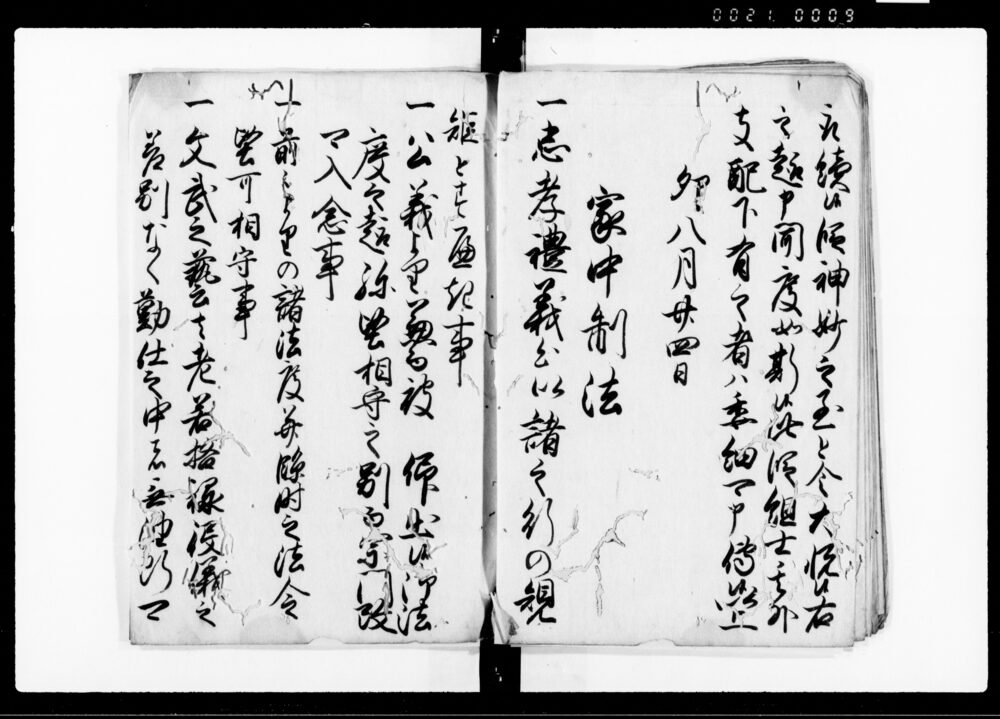 0021 0009
相続候段神妙之至と令大悦候右
之趣申聞度如斯候此段組士其外
支配下有之者ハ委細可申傳候以上
卯八月廿四日
家中制法
一忠孝禮義を以諸之行の規
矩とすへき事
一公義より兼而被仰出候御法
度之趣弥堅相守之別而宗門改
可入念事
一前々よりの諸法度并臨時之法令
堅可相守事
一文武之藝ハ老若格禄役儀之
差別なく勤仕之中無油断可